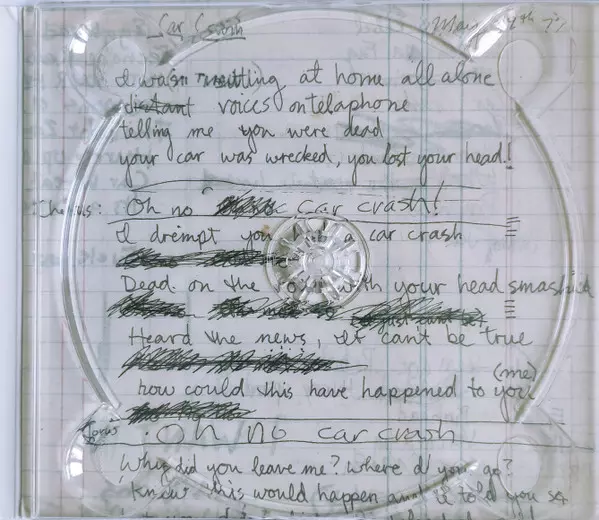 Car Crash May 9th 77
I was sitting at home all alone
distant voices on telaphone
telling me you were dead
your car was wrecked, you lost your head!
Chorus: Oh no car crash!
I drempt you a car crash
Dead on the with your head smashed
Heard the news, it can't be true
(me)
how could this have happened to you
Chorus Oh no car crash
Why did you leave me? Where d you go?
Knew this would happen and I told you so